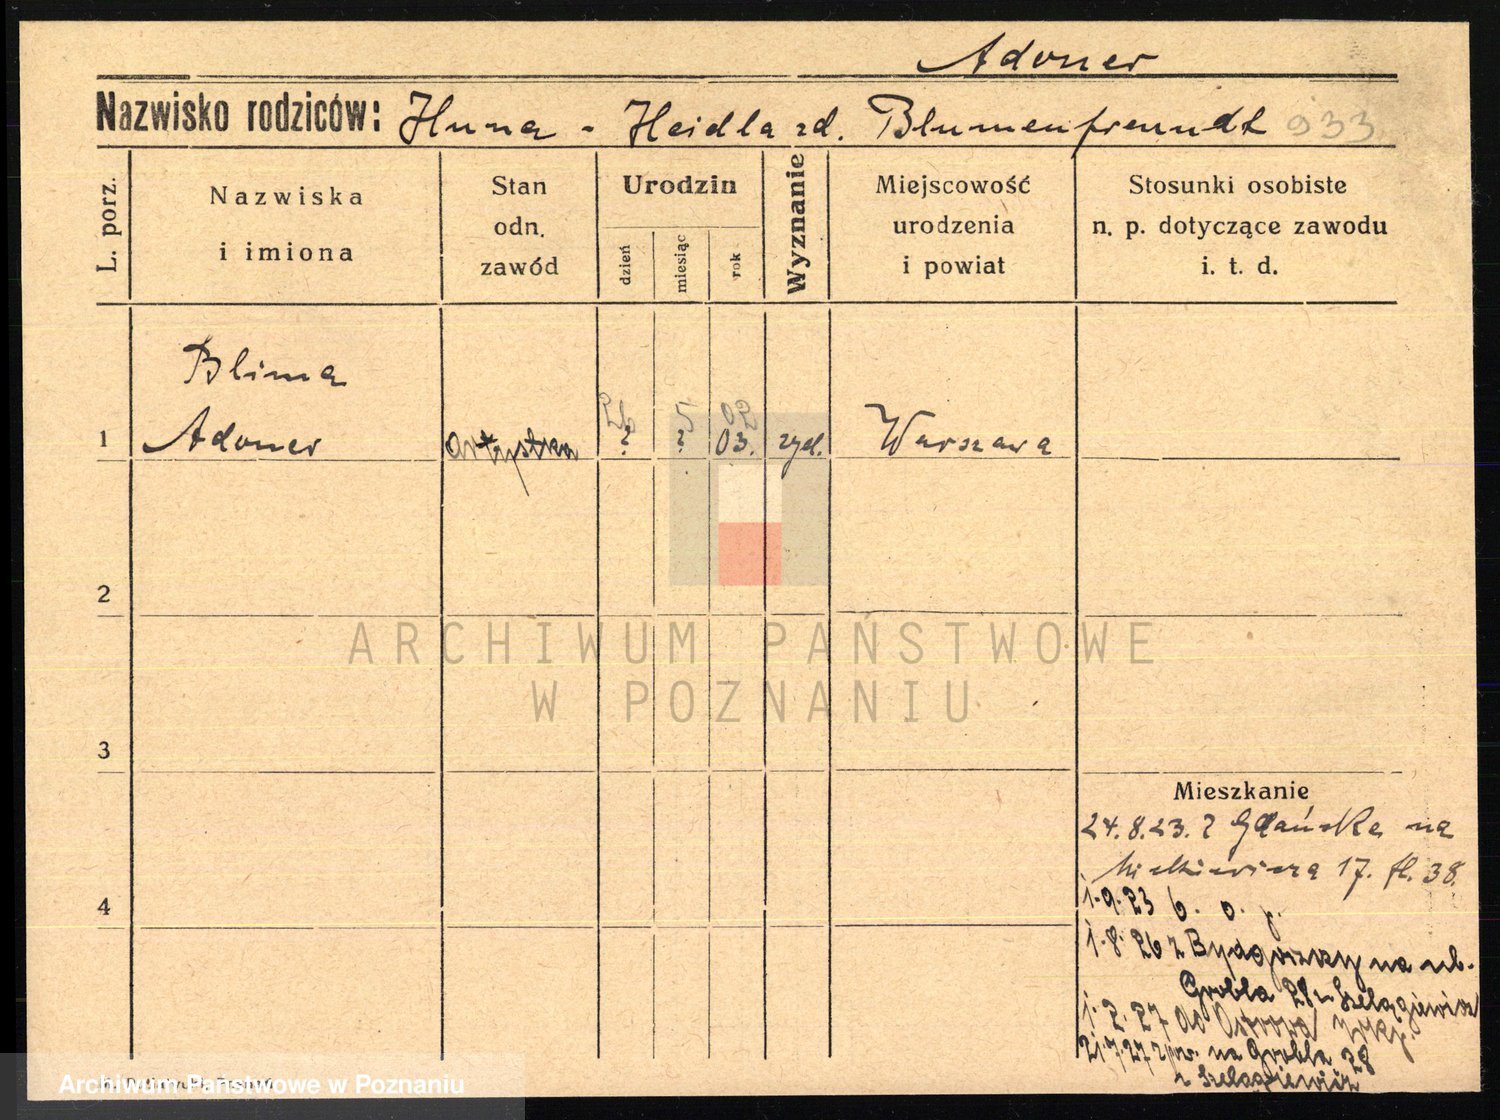 Adoner
Nazwisko rodziców: Huna - Heidla zd. Blumenfreundt 933
L. porz.
Nazwiska
i imiona
Stan
odn.
zawód
Urodzin
dzień
miesiąc
rok
Wyznanie
Miejscowość
urodzenia
i powiat
Stosunki osobiste
n. p. dotyczące zawodu
i. t. d.
Blima
26 5 02
1 Adoner artystka ? ? 03. żyd. Warszawa
2
ARCHIWUM PAŃSTWOWE
W POZNANIU
3
Mieszkanie
24.8.23. z Gdańska na
17. fl. 38.
4
1.9.23 b. o. p.
1.8.26 z Bydgoszczy na ul.
Grobla 28 u Szelągiewicz
1.2.27 do Ostrowa
21.7.27 na Grobla 28
u Szelągiewicz
Archiwum Państwowe w Poznaniu